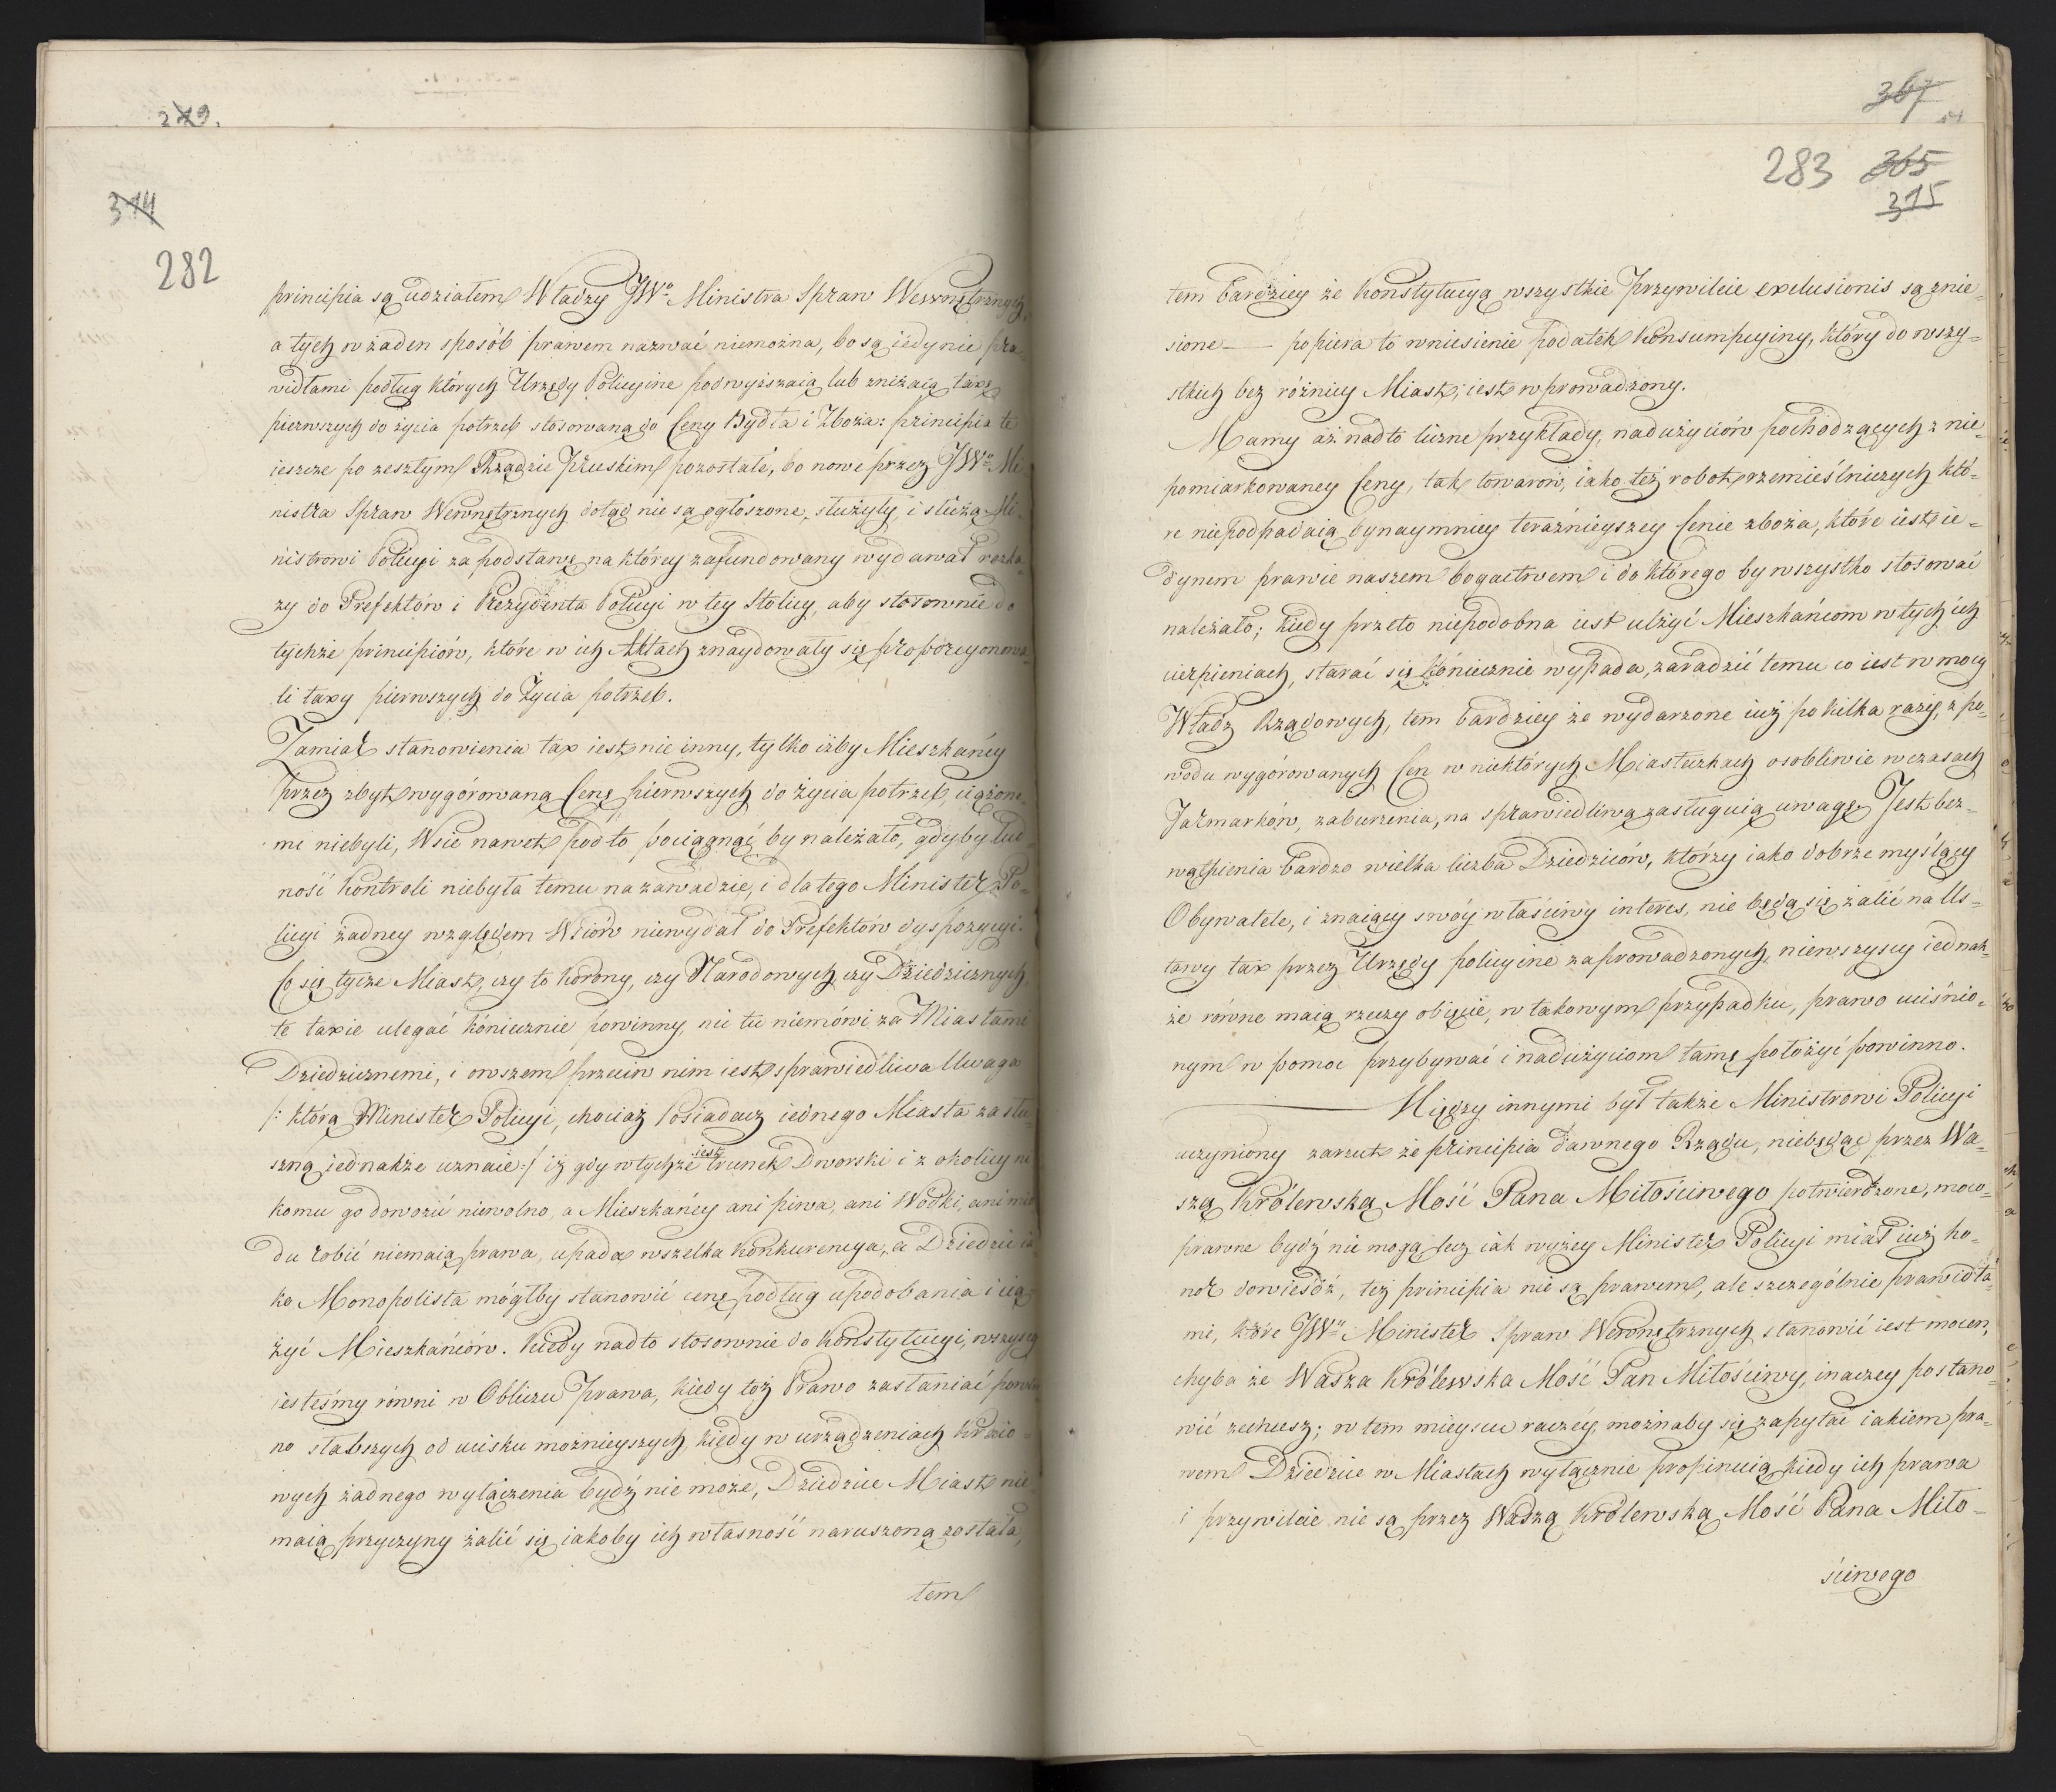 279.
314
282
principia są udziałem Władzy JWo Ministra Spraw Wewnętrznych,
a tych w żaden sposób prawem nazwać niemożna, bo są iedynie pra-
widłami podług których Urzędy Policyine podwyższaią lub zniżaią taxę
pierwszych do życia potrzeb stosowaną do Ceny Bydła i Zboża: principia te
ieszcze po zeszłym Rządzie Pruskim pozostałe, bo nowe przez JWo Mi-
nistra Spraw Wewnętrznych dotąd nie są ogłoszone, służyły, i służą Mi-
nistrowi Policyi za podstawę na którey zafundowany wydawał rozka-
zy do Prefektów i Prezydenta Policyi w tey Stolicy, aby stosownie do
tychże principiów, które w ich Aktach znaydowały się proporcyonowa-
li taxy pierwszych do Życia potrzeb.
Zamiar stanowienia tax iest nie inny, tylko iżby Mieszkańcy
przez zbyt wygórowaną Cenę pierwszych do życia potrzeb, uciążone-
mi niebyli, Wsie nawet pod to pociągnąć by należało, gdyby lud-
ność kontroli niebyła temu na zawadzie, i dla tego Minister Po-
licyi żadney względem Wsiów niewydał do Prefektów dyspozycyi.
Co się tycze Miast, czy to Korony, czy Narodowych czy Dziedzicznych,
te taxie ulegać koniecznie powinny, nic tu niemówi za Miastami
Dziedzicznemi, i owszem przeciw nim iest sprawiedliwa Uwaga
/: którą Minister Policyi, chociaż Posiadacz iednego Miasta za słu-
szną iednakże uznaie:/ iż gdy w tychże iest trunek Dworski i z okolicy ni-
komu go dowozić niewolno, a Mieszkańcy ani piwa, ani Wodki, ani mio-
du robić niemaią prawa, upada wszelka konkurencya, a Dziedzic ia-
ko Monopolista mógłby stanowić cenę podług upodobania i cią-
żyć Mieszkańców. Kiedy nadto stosownie do Konstytucyi, wszyscy
iesteśmy równi w Obliczu Prawa, kiedy toż Prawo zasłaniać powin-
no słabszych od ucisku możnieyszych, kiedy w urządzeniach Kraio-
wych żadnego wyłączenia bydź nie może, Dziedzice Miast nie
maią przyczyny żalić się iakoby ich własność naruszoną została,
tem
367
283 365
315
tem bardziey że Konstytucyą wszystkie Przywileie exclusionis są znie-
sione — popiera to wniesienie podatek Konsumpcyiny, który do wszy-
stkich bez różnicy Miast, iest wprowadzony.
Mamy aż nadto liczne przykłady, nadużyciów pochodzących z nie-
pomiarkowaney Ceny, tak towarów, iako też robot rzemieślniczych któ-
re niepodpadaią bynaymniey teraźnieyszey Cenie zboża, które iest ie-
dynem prawie naszem bogactwem i do którego by wszystko stosować
należało; kiedy przeto niepodobna iest ulżyć Mieszkańcom w tych ich
cierpieniach, starać się koniecznie wypada, zaradzić temu co iest w mocy
Władz Rządowych, tem bardziey że wydarzone iuż po kilka razy, z po-
wodu wygórowanych Cen w niektórych Miasteczkach osobliwie w czasach
Jarmarków, zaburzenia, na sprawiedliwą zasługuią uwagę. Jest bez-
wątpienia bardzo wielka liczba Dziedziców, którzy iako dobrze myślący
Obywatele, i znaiący swóy właściwy interes, nie będą się żalić na Us-
tawy tax przez Urzędy policyine zaprowadzonych, niewszyscy iednak-
że równe maią rzeczy obięcie, w takowym przypadku, prawo uciśnio-
nym w pomoc przybywać i nadużyciom tamę położyć powinno.
Między innymi był także Ministrowi Policyi
uczyniony zarzut że principia dawnego Rządu, niebędąc przez Wa-
szą Królewską Mość Pana Miłościwego potwierdzone, moco-
prawne bydź nie mogą, lecz iak wyżey Minister Policyi miał iuż ho-
nor dowieśdź, też principia nie są prawem, ale szczególnie prawidła-
mi, które JWo Minister Spraw Wewnętrznych stanowić iest mocen,
chyba że Wasza Królewska Mość Pan Miłościwy, inaczey postano-
wić zechcesz; w tem mieyscu raczéy, możnaby się zapytać iakiem pra-
wem Dziedzice w Miastach wyłącznie propinuią, kiedy ich prawa
i przywileie nie są przez Waszą Królewską Mość Pana Miło-
ściwego